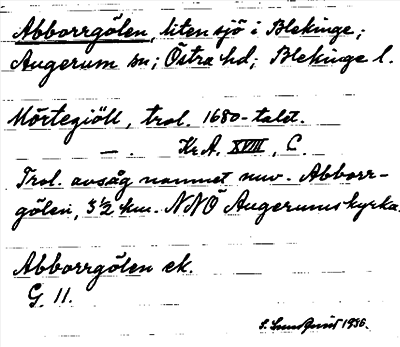 Abborrgölen, liten sjö i Blekinge;
Augerum sn; Östra hd; Blekinge l.
Mörtegiöll, trol. 1680-talet.
— . Kr.A. XVIII, C.
Trol. avsåg namnet nuv. Abborr-
gölen, 3½ km. NNÖ Augerums kyrka.
Abborrgölen ek.
G. 11.
1936.